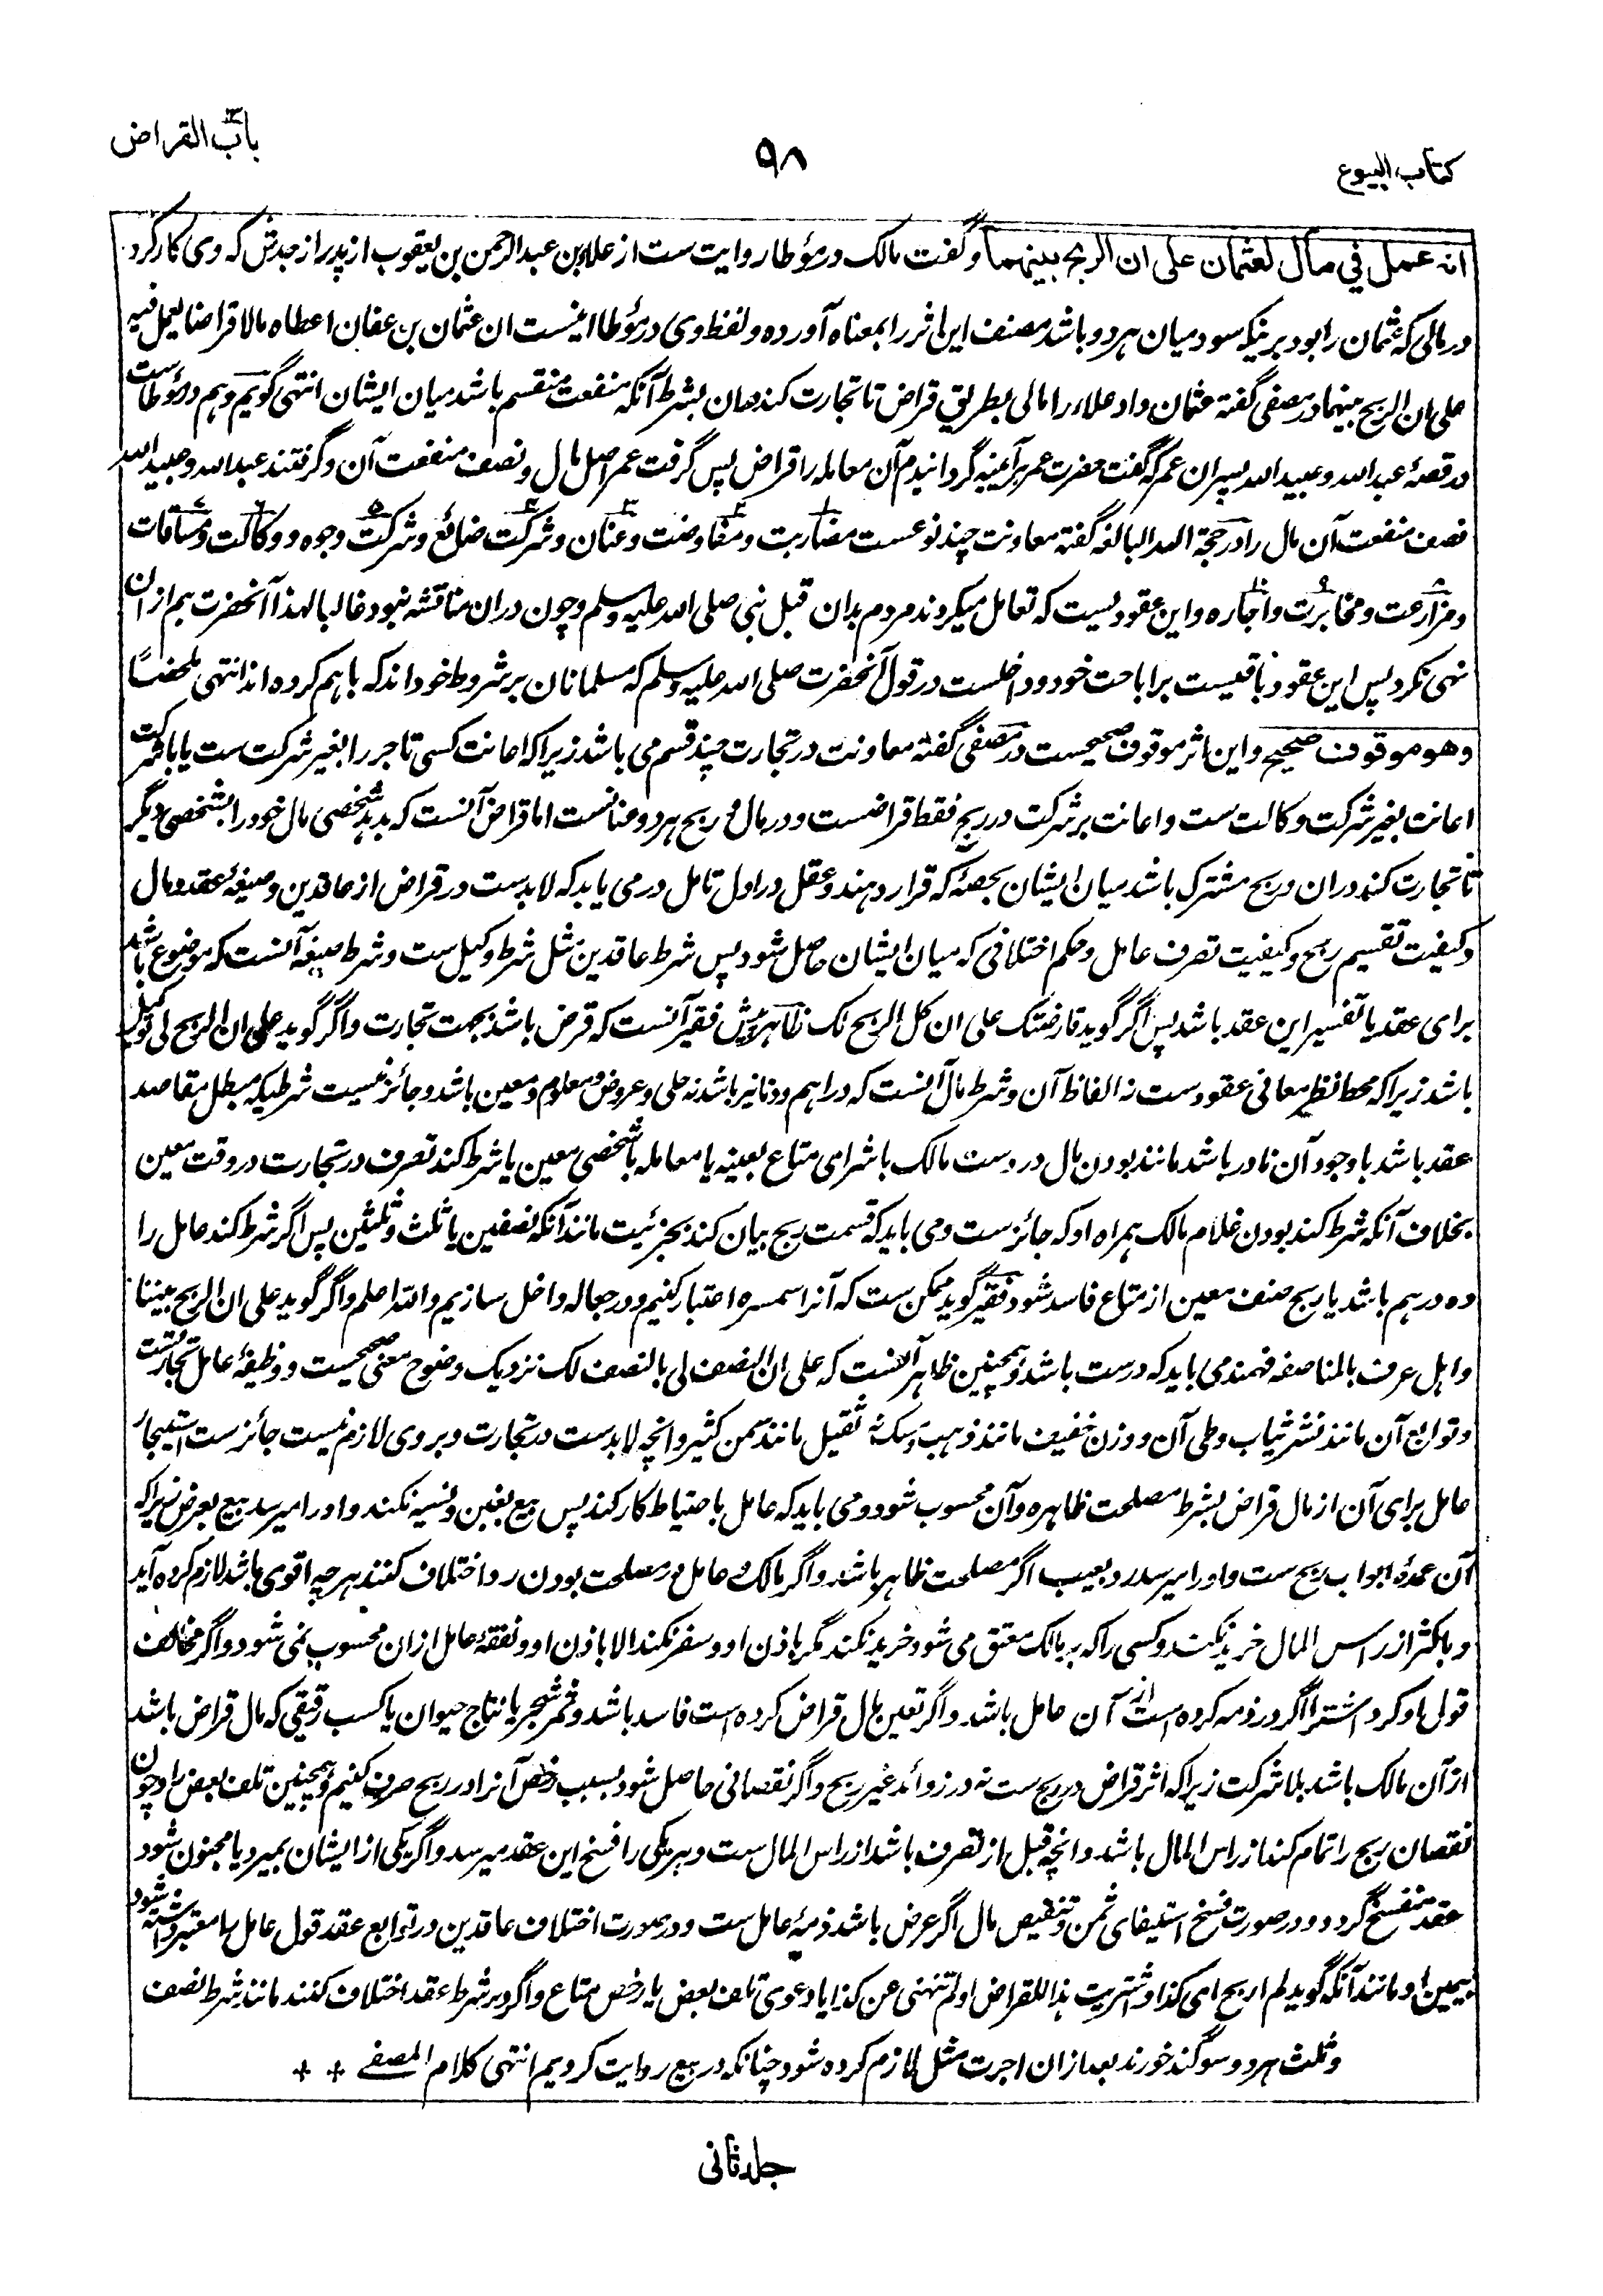 باب القراض
۹۸
کتاب البیوع
انه عمل في مال لعثمان على ان الربح بينهما و گفت مالک در مؤطا روایت ست از علاء بن عبدالرحمن بن یعقوب از پدر از جدش که وی کار کرد
در مالی که عثمان را بود بر نیکه سود میان هر دو باشد مصنف این اثر را بمعناه آورده و لفظ وی در مؤطا اینست ان عثمان بن عفان اعطاه مالا قراضا یعمل فیه
علی ان الربح بینهما در مصفی گفته عثمان داد علاء را مالی بطریق قراض تا تجارت کند دران بشرط آنکه منفعت منقسم باشد میان ایشان انتهی گویم و هم در مؤطاست
در قصهٔ عبدالله و عبیدالله پسران عمر که گفت حضرت عمر هر آئینه گردانیدم آن معامله را قراض پس گرفت عمر اصل مال و نصف منفعت آن و گرفتند عبدالله و عبیدالله
نصف منفعت آن مال را در حجة الله البالغه گفته معاونت چند نوعست مضاربت و مفاوضت و عنان و شرکت ضائع و شرکت وجوه و وکالت و مساقات
و مزارعت و مخابرت و اجاره و این عقودیست که تعامل میکردند مردم بدان قبل نبی صلی الله علیه وسلم و چون دران مناقشه نبود غالبا لهذا آنحضرت هم ازان
نهی نکرد پس این عقود باقیست بر اباحت خود و داخلست در قول آنحضرت صلی الله علیه وسلم که مسلمانان بر شروط خود اند که باهم کرده اند انتهی ملخصاً
وهو موقوف صحيح و این اثر موقوف صحیحست در مصفی گفته معاونت در تجارت چند قسم می باشد زیرا که اعانت کسی تاجر را بغیر شرکت ست یا باشرکت
اعانت بغیر شرکت وکالت ست و اعانت بر شرکت در ربح فقط قراضست و در مال و ربح هر دو عنانست اما قراض آنست که بدهد شخصی مال خود را بشخصی دیگر
تا تجارت کند دران و ربح مشترک باشد میان ایشان بحصهٔ که قرار دهند و عقل در اول تامل در می یابد که لابدست در قراض از عاقدین و صیغهٔ عقد و مال
و کیفیت تقسیم ربح و کیفیت تصرف عامل و حکم اختلافی که میان ایشان حاصل شود پس شرط عاقدین مثل شرط وکیل ست و شرط صیغه آنست که موضوع باشد
برای عقد یا تفسیر این عقد باشد پس اگر گوید قارضتک علی ان کل الربح لک ظاهر پیش فقیر آنست که قرض باشد بجهت تجارت و اگر گوید علی ان الربح لی توکیل
باشد زیرا که محط نظر معانی عقودست نه الفاظ آن و شرط مال آنست که دراهم و دنانیر باشد نه حلی و عروض و معلوم و معین باشد و جائز نیست شرطیکه مبطل مقاصد
عقد باشد با وجود آن نادر باشد مانند بودن مال در دست مالک یا شرای متاع بعینه یا معامله با شخصی معین یا شرط کند تصرف در تجارت در وقت معین
بخلاف آنکه شرط کند بودن غلام مالک همراه او که جائز ست و می باید که قسمت ربح بیان کند بجزئیت مانند آنکه نصفین یا ثلث و ثلثین پس اگر شرط کند عامل را
ده درهم باشد یا ربح صنف معین از متاع فاسد شود فقیر گوید ممکن ست که آنرا سمسره اعتبار کنیم و در جعاله داخل سازیم والله اعلم و اگر گوید علی ان الربح بیننا
و اهل عرف بالمناصفه فهمند می باید که درست باشد و همچنین ظاهر آنست که علی ان النصف لی یا النصف لک نزدیک وضوح معنی صحیحست و وظیفهٔ عامل تجارتست
و توابع آن مانند نشر ثیاب و طی آن و وزن خفیف مانند ذهب و مسک نه ثقیل مانند سمن کثیر و انچه لابدست در تجارت و بر وی لازم نیست جائز ست استیجار
عامل برای آن از مال قراض بشرط مصلحت ظاهره و آن محسوب شود و می باید که عامل باحتیاط کار کند پس بیع بغبن و نسیه نکند و او را میرسد بیع بعرض زیراکه
آن عمدهٔ ابواب ربح ست و او را میرسد رد بعیب اگر مصلحت ظاهر باشد و اگر مالک و عامل در مصلحت بودن رد اختلاف کنند هر چه اقوی باشد لازم کرده آید
و باکثر از راس المال خرید نکند و کسی را که بر مالک معتق می شود خرید نکند مگر باذن او و سفر نکند الا باذن او و نفقهٔ عامل ازان محسوب نمی شود و اگر مخالفت
قول او کرد اشترا اگر در ذمه کرده است ازآن عامل باشد و اگر تعین مال قراض کرده است فاسد باشد و ثمر شجر یا نتاج حیوان یا کسب رقیقی که مال قراض باشد
ازآن مالک باشد بلا شرکت زیراکه اثر قراض در ربح ست نه در زوائد غیر ربح و اگر نقصانی حاصل شود بسبب رخص آنرا در ربح صرف کنیم و همچنین تلف بعض را و چون
نقصان ربح را تمام کند از راس المال باشد و انچه قبل از تصرف باشد از راس المال ست و هر یکی را فسخ این عقد میرسد و اگر یکی از ایشان بمیرد یا مجنون شود
عقد منفسخ گردد و در صورت فسخ استیفای ثمن و تنضیض مال اگر عرض باشد ذمهٔ عامل ست و در صورت اختلاف عاقدین در توابع عقد قول عامل را معتبر داشته شود
بیمین او مانند آنکه گوید لم اربح ای کذا و اشتریت هذا للقراض او لم تنهنی عن کذا یا دعوی تلف بعض یا رخص متاع و اگر در شرط عقد اختلاف کنند مانند شرط نصف
و ثلث هر دو سوگند خورند بعد ازان اجرت مثل لازم کرده شود چنانکه در بیع روایت کردیم انتهی کلام المصفی
جلد ثانی